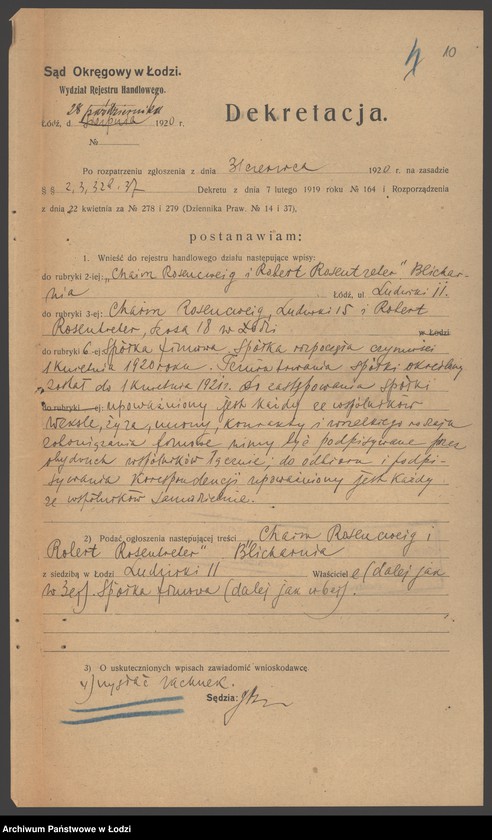 10
Sąd Okręgowy w Łodzi.
Wydział Rejestru Handlowego.
28 października
Łódź, d. sierpnia 1920 r.
№
Dekretacja.
Po rozpatrzeniu zgłoszenia z dnia 31 czerwca 1920 r. na zasadzie
§ § 2, 3, 328. 37 Dekretu z dnia 7 lutego 1919 roku № 164 i Rozporządzenia
z dnia 22 kwietnia za № 278 i 279 (Dziennika Praw. № 14 i 37),
postanawiam:
1. Wnieść do rejestru handlowego działu następujące wpisy:
do rubryki 2-iej: „Chaim Rosencweig i Robert Rosentreter" Blichar-
nia Łódź, ul Ludwiki 11.
do rubryki 3-ej: Chaim Rosencweig, Ludwiki 15 i Robert
Rosentreter, 18 w Łodzi w Łodzi
do rubryki 6-ej Spółka firmowa Spółka rozpoczęła czynności
1 kwietnia 1920 roku. Termin trwania spółki określony
został do 1 kwietnia 1921 r. Do zastępowania spółki
do rubryki ej: upoważniony jest każdy ze wspólników
weksle, żyra, umowy, kontrakty i wszelkiego rodzaju
zobowiązania firmowe winny być podpisywane przez
obydwuch wspólników łącznie; do odbioru i podpi-
sywania korespondencji upoważniony jest każdy
ze wspólników samodzielnie.
2) Podać ogłoszenia następującej treści „Chaim Rosencweig i
Robert Rosentreter" Blicharnia
z siedzibą w Łodzi Ludwiki 11 Właściciel e (dalej jak
w 3ej). Spółka firmowa (dalej jak w 6ej).
3) O uskutecznionych wpisach zawiadomić wnioskodawcę
4) wysłać rachunek.
Sędzia:
Archiwum Państwowe w Łodzi